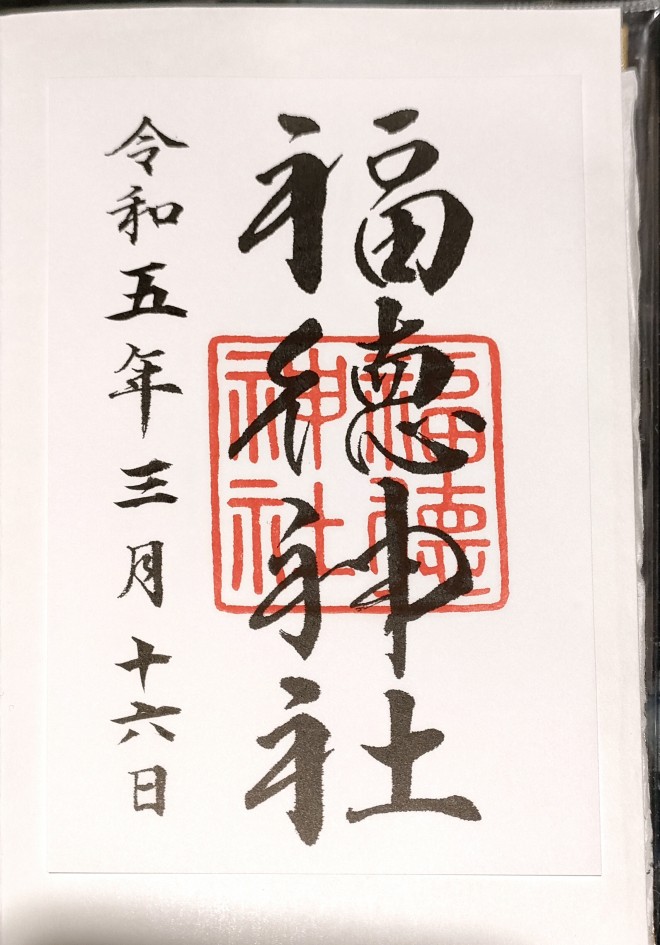 福徳神社
福徳
神社
令和五年三月十六日